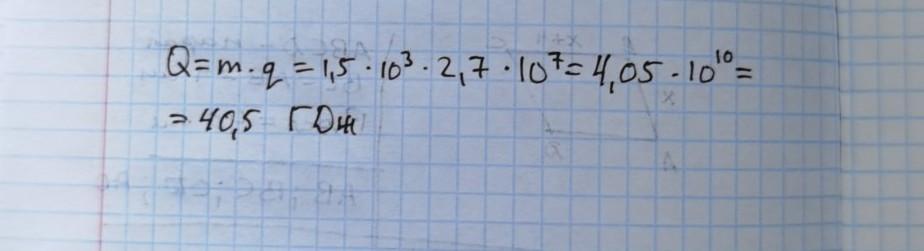 Q = m · q = 1,5 · 10³ · 2,7 · 10⁷ = 4,05 · 10¹⁰ =
= 40,5 ГДж